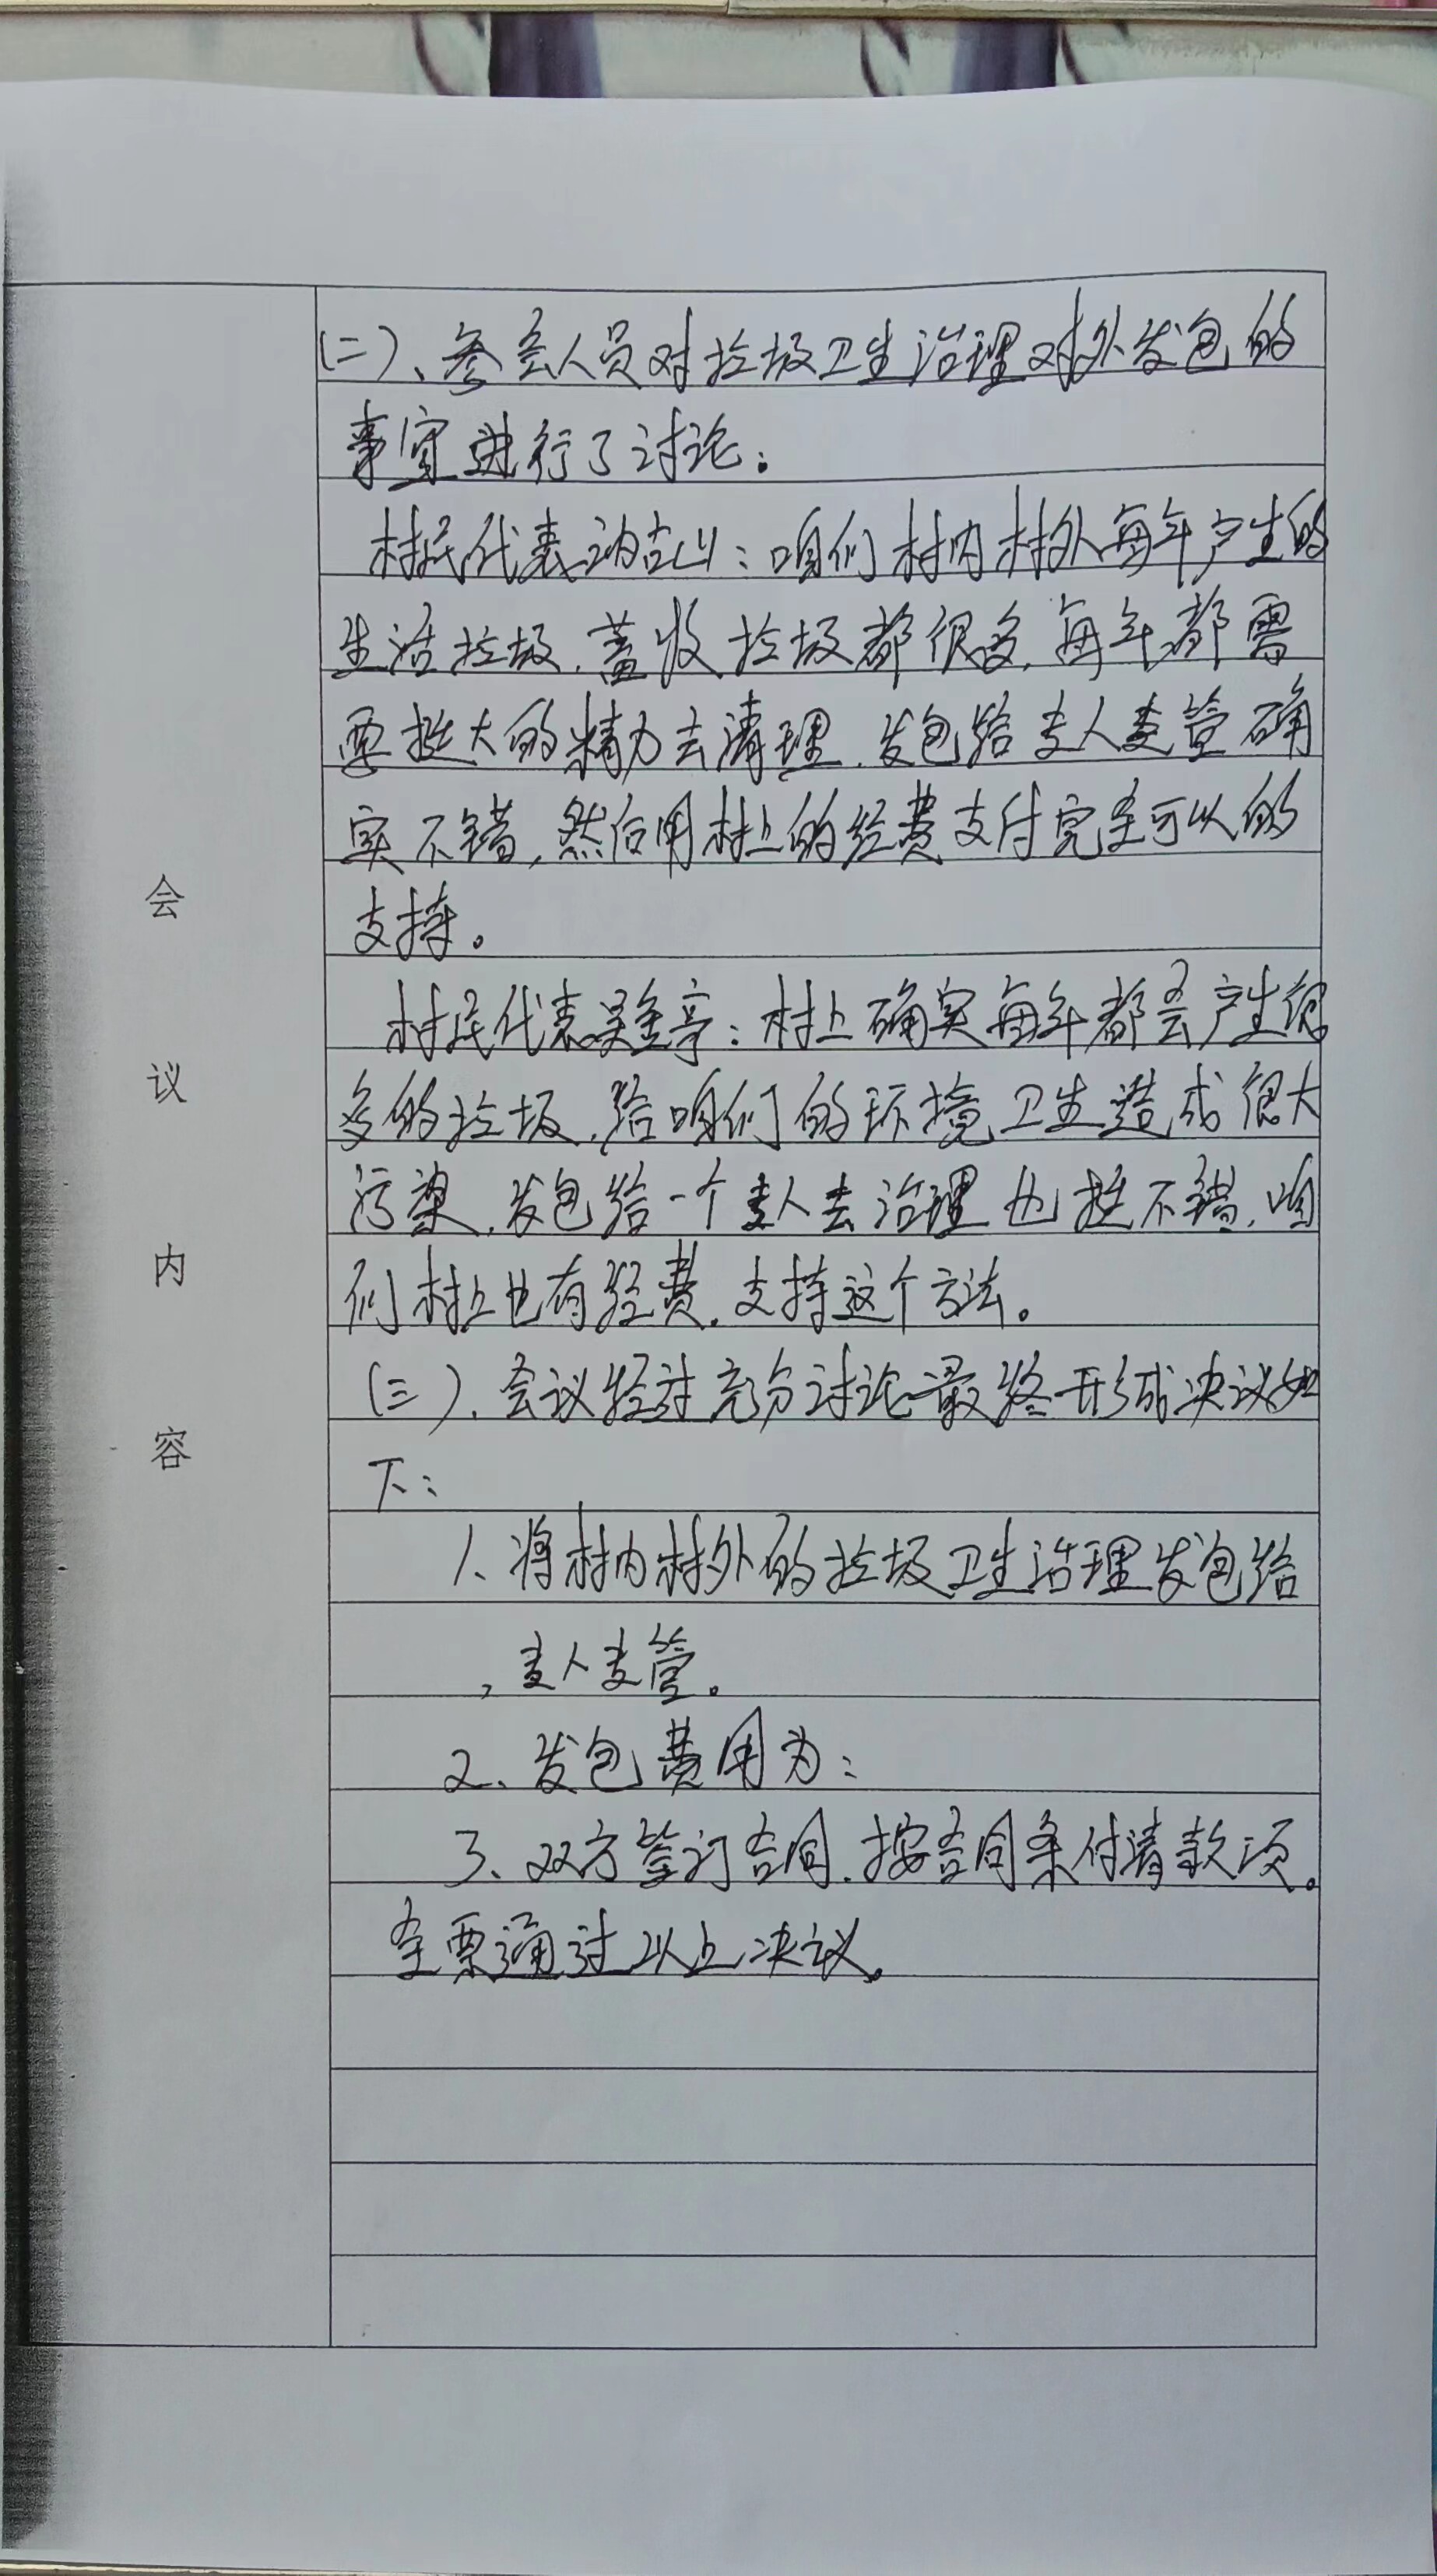 会议内容
(二)、参会人员对垃圾卫生治理对外发包的
事宜进行了讨论:
村民代表 : 咱们村内村外每年产生的
生活垃圾,蓄牧垃圾都很多,每年都需
要挺大的精力去清理,发包给专人专管确
实不错,然后用村上的经费支付完全可以的
支持。
村民代表吴金亭:村上确实每年都会产生很
多的垃圾,给咱们的环境卫生造成很大
污染,发包给一个专人去治理也挺不错,咱
们村上也有经费,支持这个方法。
(三)、会议经过充分讨论最终形成决议如
下:
1、将村内村外的垃圾卫生治理发包给
,专人专管。
2、发包费用为:
3、双方签订合同,按合同条付清款项。
全票通过以上决议。